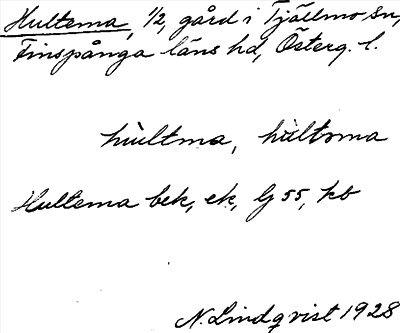 Hultema, 1/2, gård i Tjällmo sn,
Finspånga läns hd, Österg. l.
hùltma, hùltəma
Hultema bek, ek, lj 55, kb
N. Lindqvist 1928